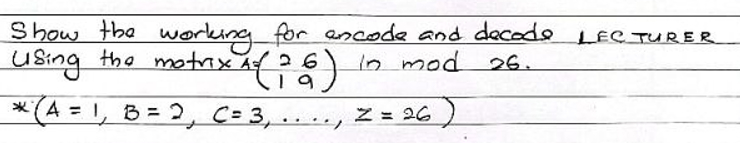 Show the working for encode and decode LECTURER
using the matrix A = ( 2 6
1 9 ) in mod 26.
* (A = 1, B = 2, C = 3, ...., Z = 26)